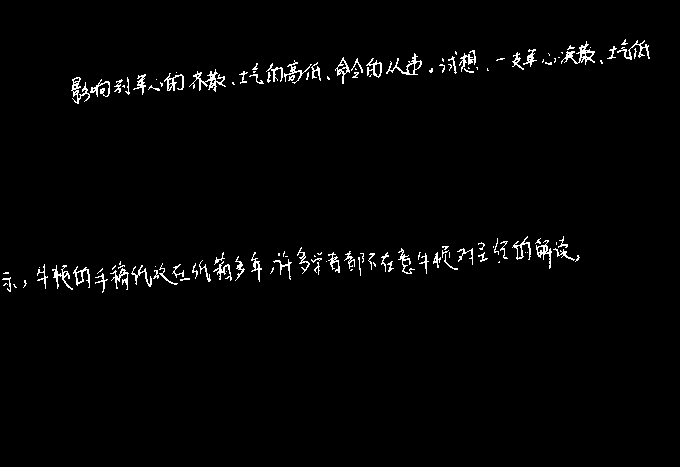 影响到军心的齐散、士气的高低、命令的从违。试想，一支军心涣散、士气低
示，牛顿的手稿纸放在纸箱多年，许多学者都不在意牛顿对圣经的解读，